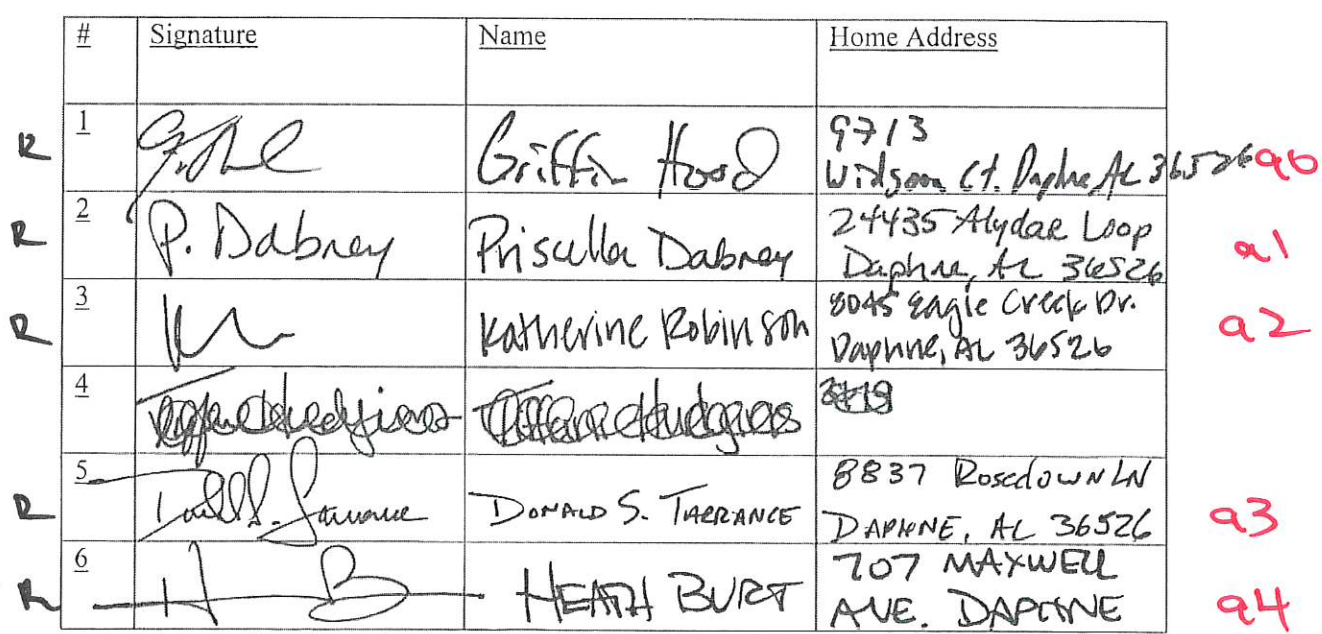 # Signature Name Home Address
R 1 Griffin Hood 9713
Daphne, AL 36526 90
R 2 P. Dabney Priscilla Dabney 24435 Alydar Loop
Daphne, AL 36526 91
R 3 Katherine Robinson 8045 Eagle Creek Dr.
Daphne, AL 36526 92
4
R 5 DONALD S. TARRANCE 8837 Rosedown LN
DAPHNE, AL 36526 93
R 6 H B HEATH BURT 707 MAXWELL
AVE. DAPHNE 94